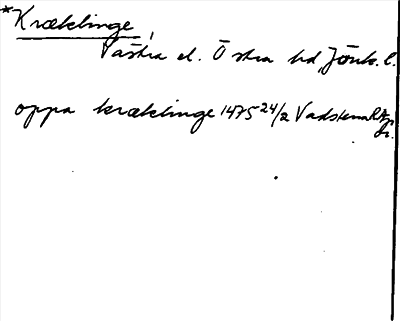 *Kræklinge
Västra el. Östra hd, Jönk. l.
oppa kræklinge 1475 24/2 Vadstena